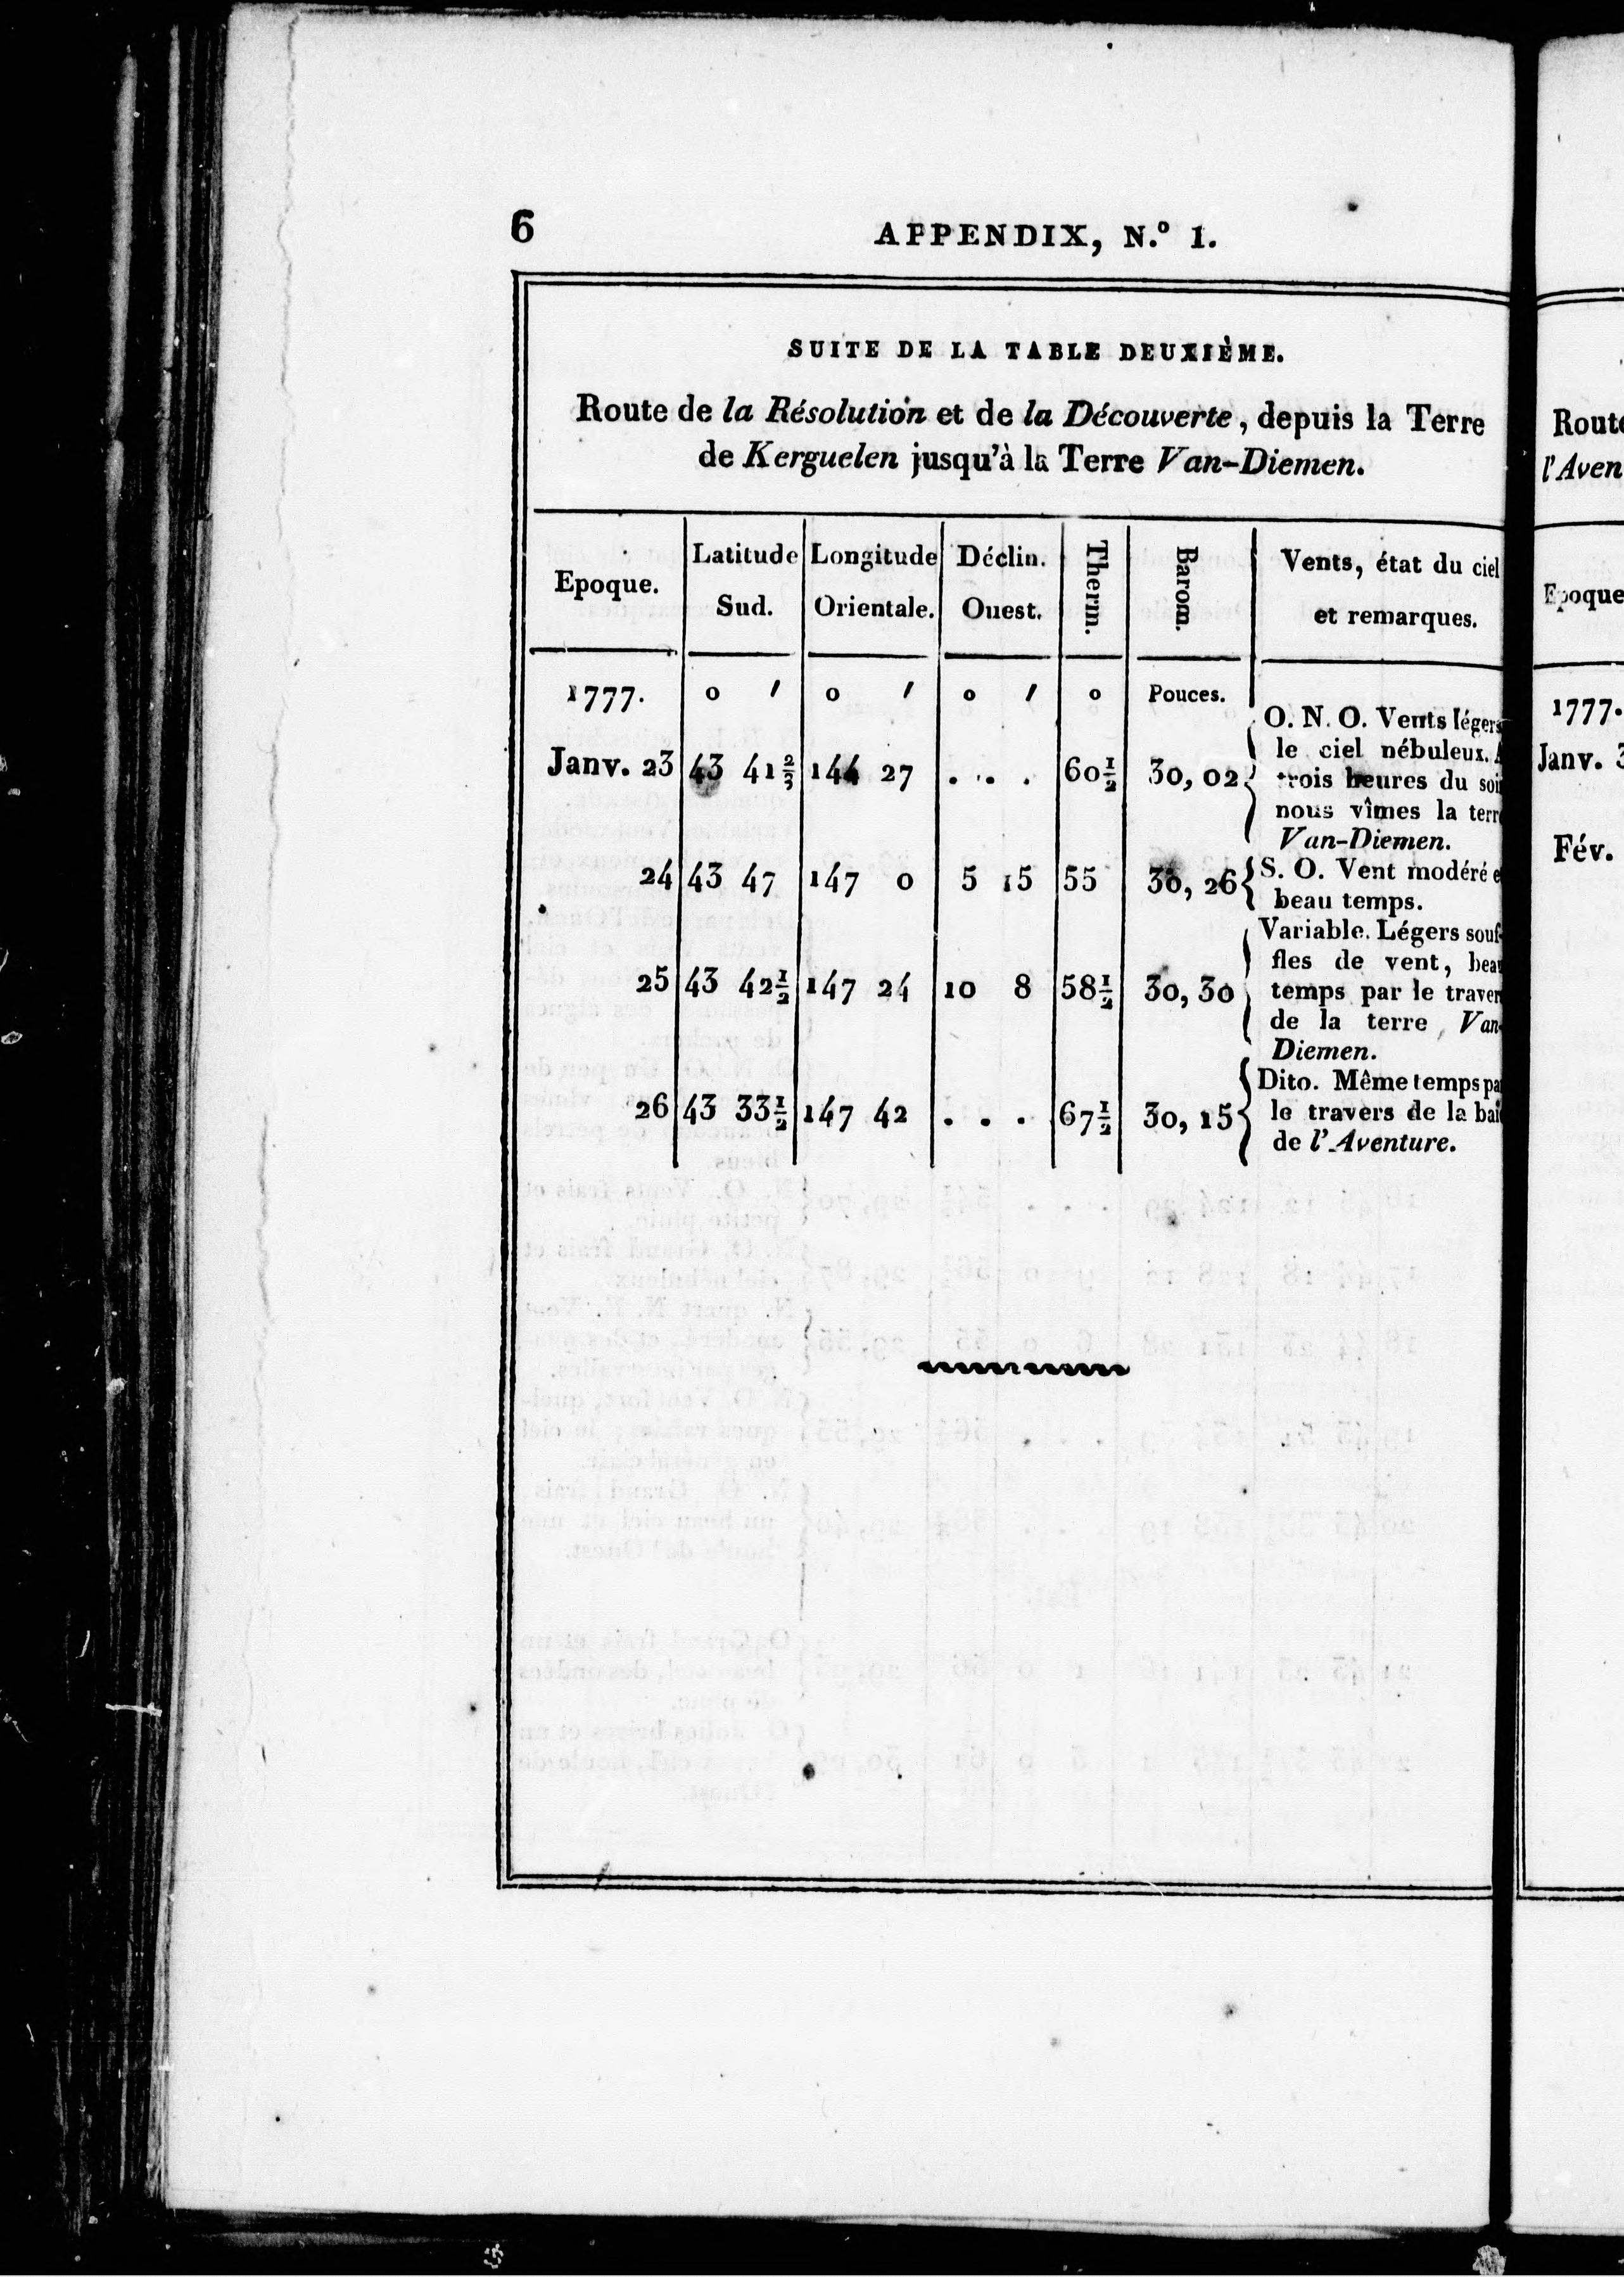 6
APPENDIX, N.º 1.
SUITE DE LA TABLE DEUXIÈME.
Route de la Résolution et de la Découverte, depuis la Terre
de Kerguelen jusqu'à la Terre Van-Diemen.
Epoque. Latitude Sud. Longitude Orientale. Déclin. Ouest. Therm. Barom. Vents, état du ciel et remarques.
1777. o ′ o ′ o ′ o Pouces.
Janv. 23 43 41⅔ 144 27 . . . 60½ 30, 02
O. N. O. Vents légers
le ciel nébuleux.
trois heures du soir
nous vîmes la terre
Van-Diemen.
24 43 47 147 0 5 15 55 30, 26
S. O. Vent modéré
beau temps.
25 43 42½ 147 24 10 8 58½ 30, 30
Variable. Légers souf-
fles de vent, beau
temps par le travers
de la terre Van-
Diemen.
26 43 33½ 147 42 . . . 67½ 30, 15
Dito. Même temps par
le travers de la baie
de l'Aventure.
Route
l'Aven
Epoque
1777.
Janv. 3
Fév.